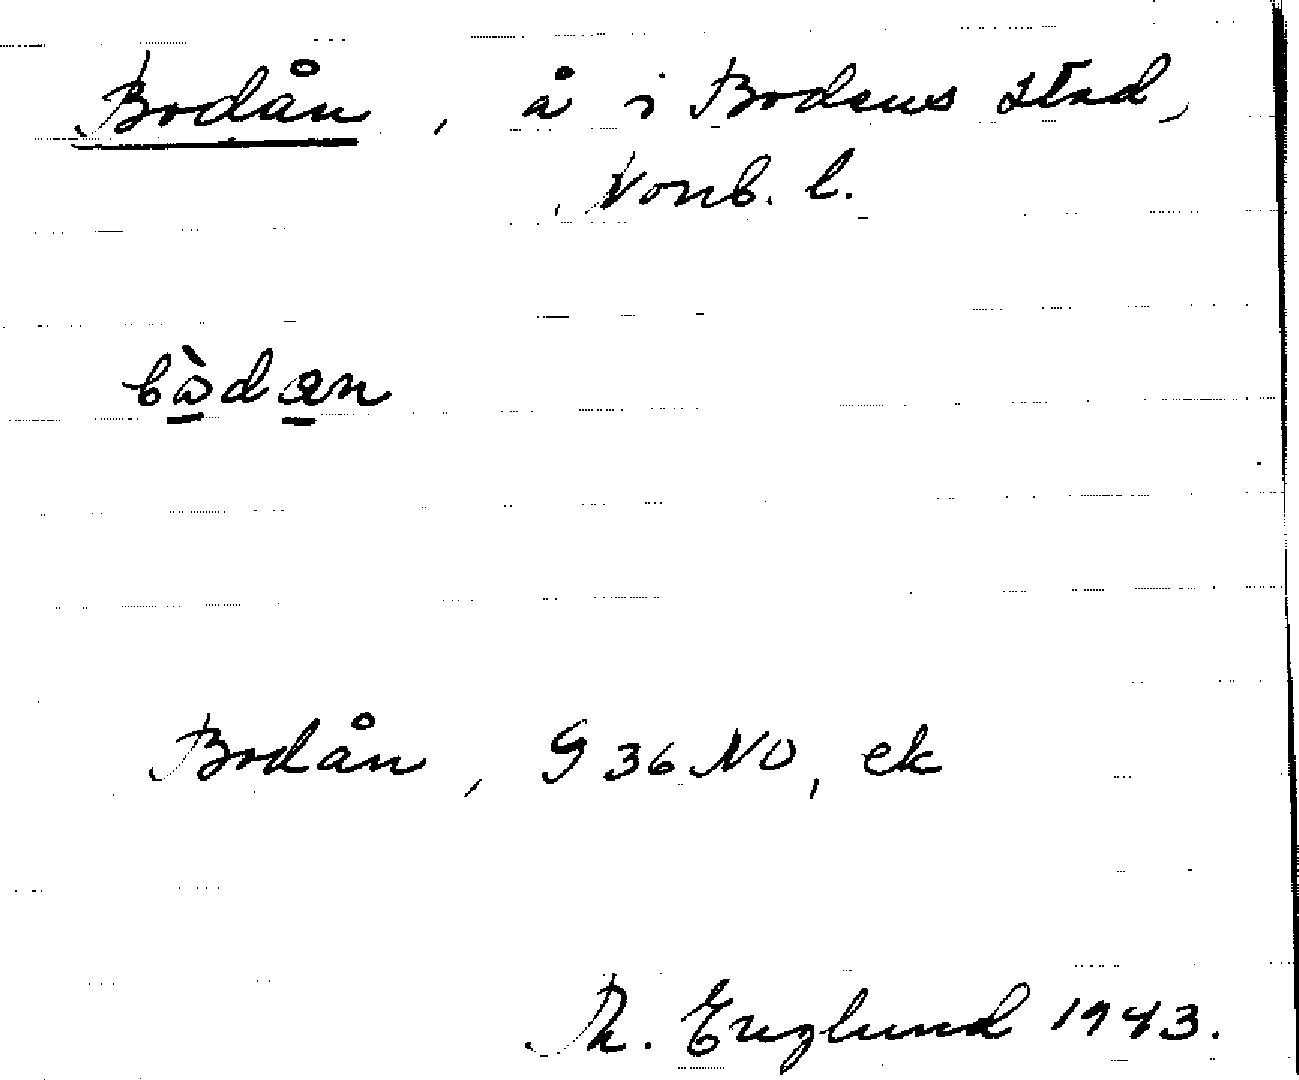 Bodån, å i Bodens stad,
Norrb. l.
bòdan
Bodån, G 36 NO, ek
R. Englund 1943.